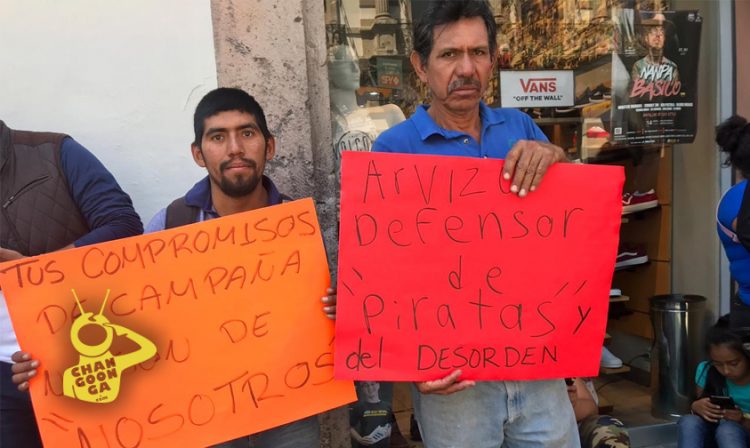 TUS COMPROMISOS
DE CAMPAÑA
DE
"NOSOTROS"
CHAN
GOON
GA
.COM
ARVIZU
DEFENSOR
de
"PIRATAS" y
del DESORDEN
VANS
"OFF THE WALL"
NANPA
BÁSICO